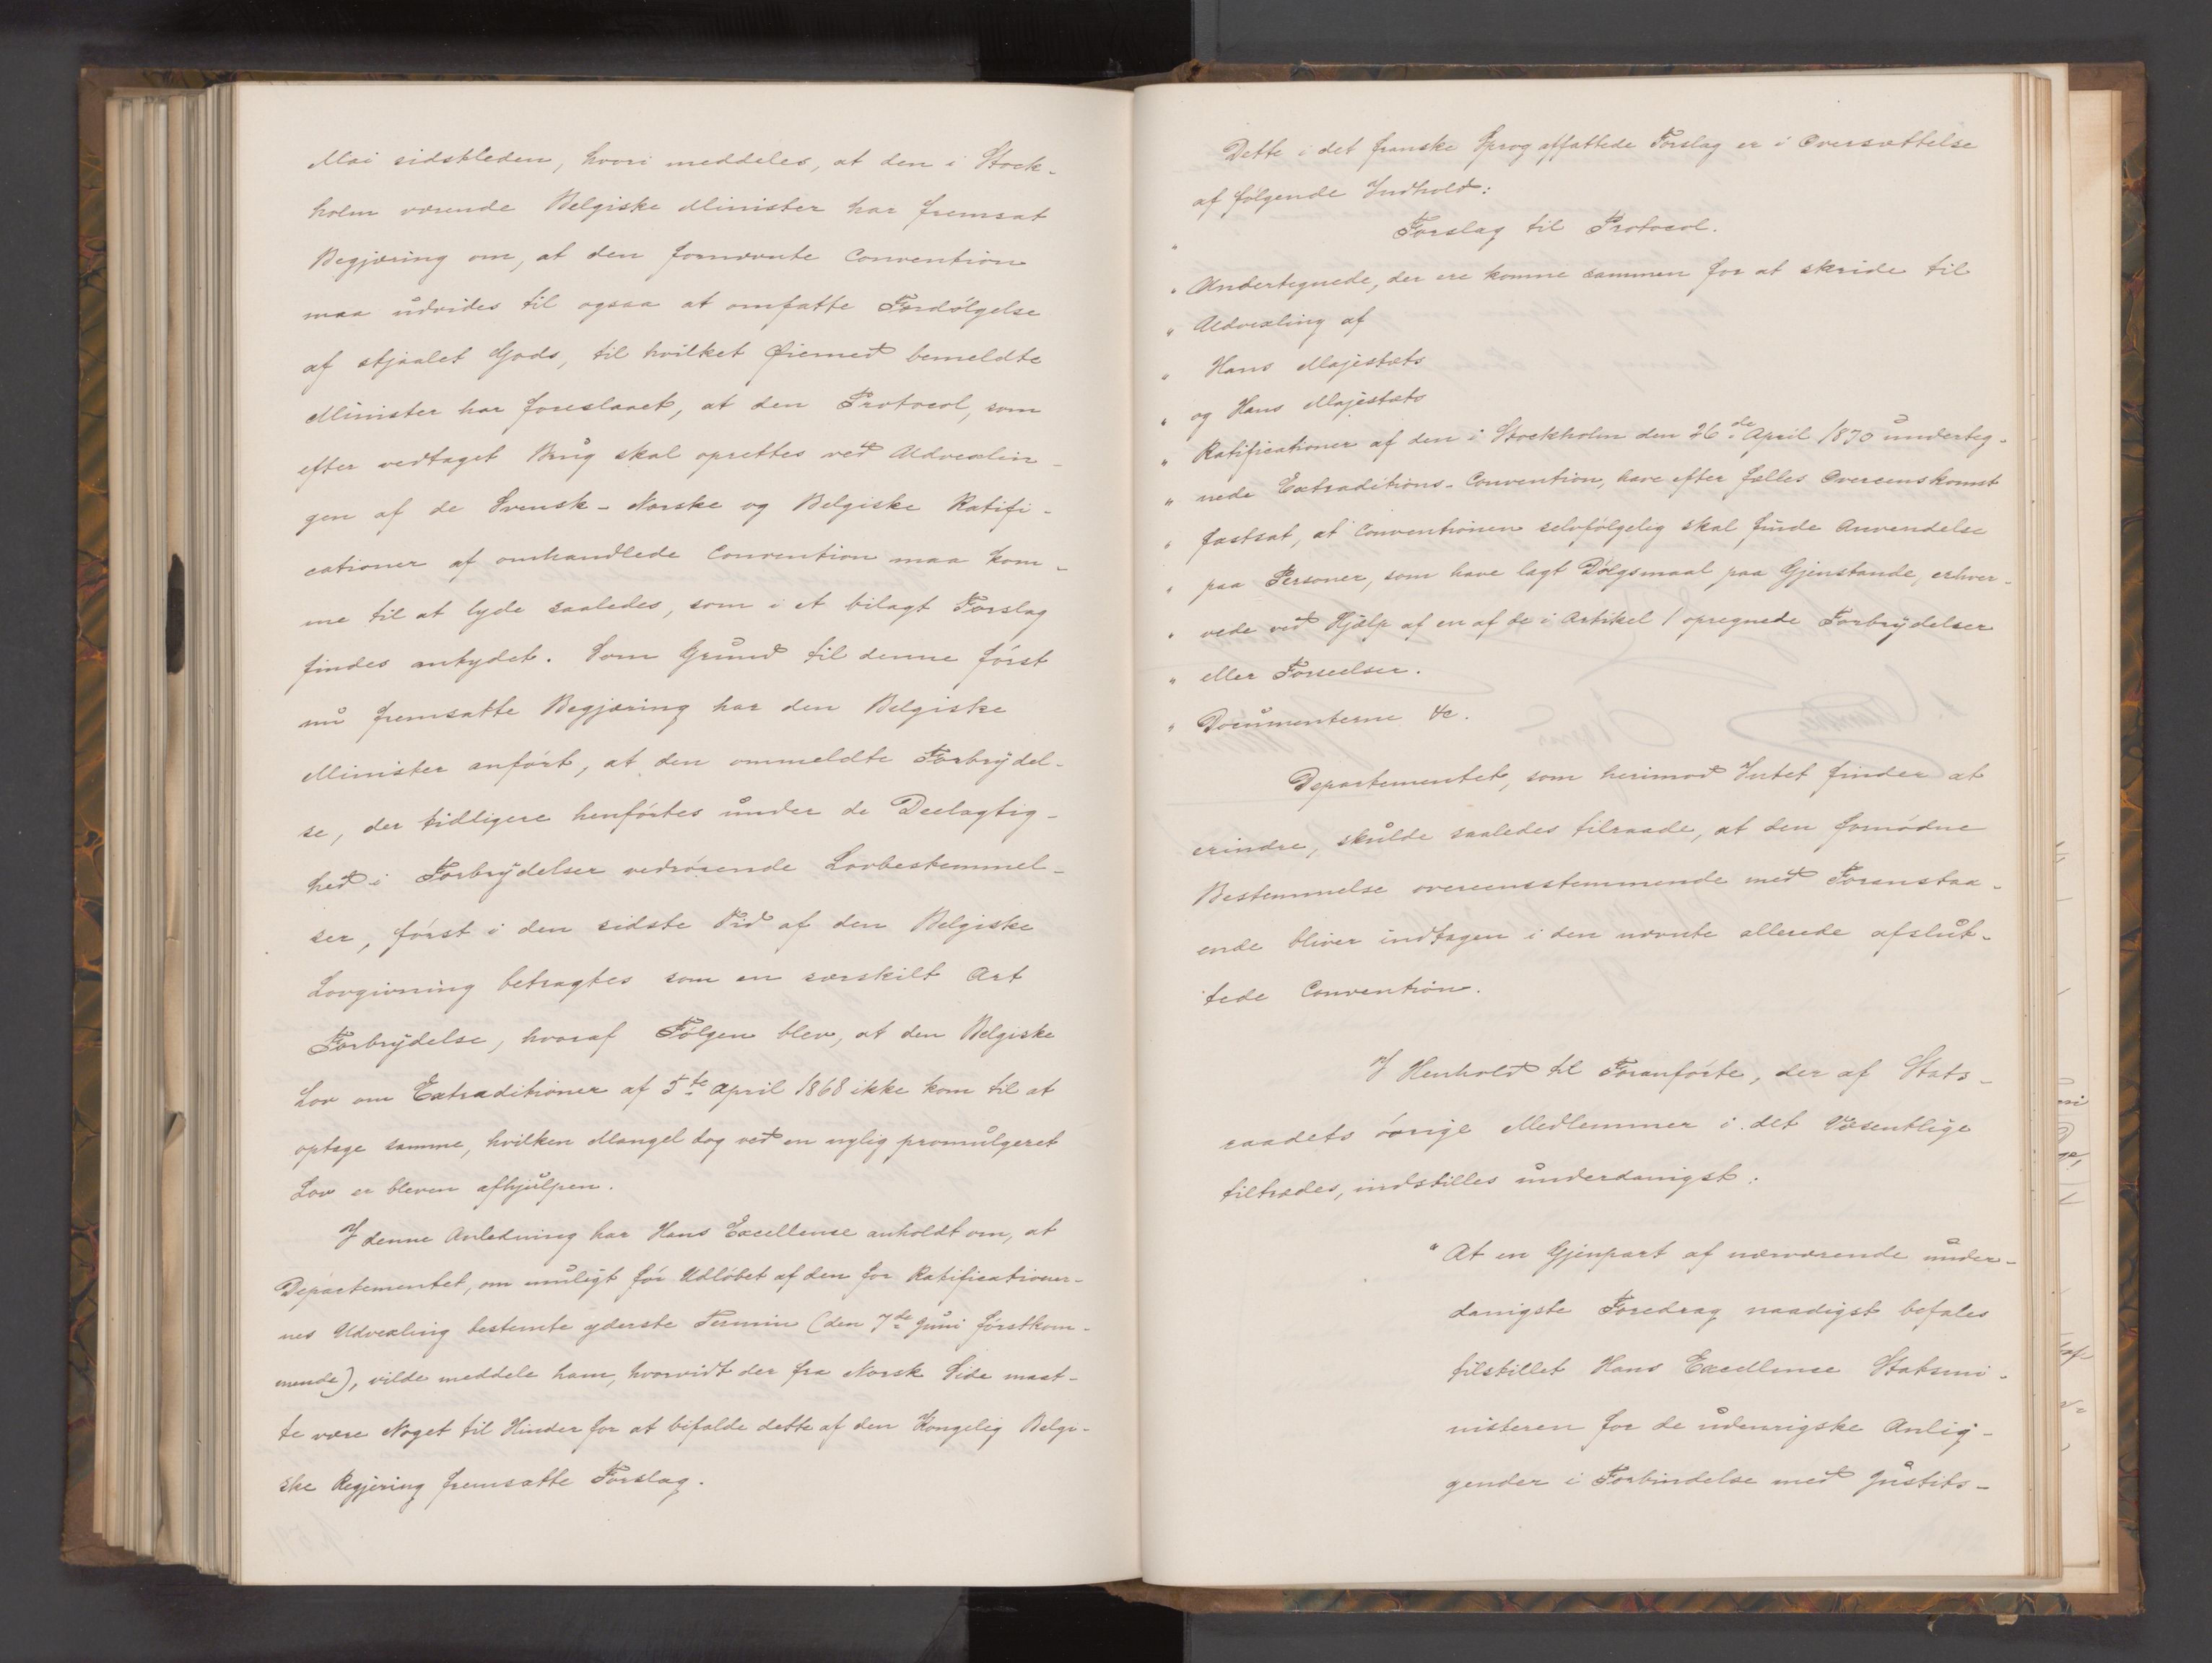 Mai sidstleden, hvori meddeles, at den i Stock-
holm værende Belgiske Minister har fremsat
Begjæring om, at den fornævnte Convention
maa udvides til ogsaa at omfatte Fordølgelse
af stjaalet Gods, til hvilket Øiemed bemeldte
Minister har foreslaaet, at den Protocol, som
efter vedtaget Brug skal oprettes ved Udvexlin-
gen af de Svensk-Norske og Belgiske Ratifi-
cationer af omhandlede Convention maa kom-
me til at lyde saaledes, som i et bilagt Forslag
findes antydet. Som Grund til denne først
nu fremsatte Begjæring har den Belgiske
Minister anført, at den ommeldte Forbrydel-
se, der tidligere henførtes under de Deelagtig-
hed i Forbrydelser vedrørende Lovbestemmel-
ser, først i den sidste Tid af den Belgiske
Lovgivning betragtes som en særskilt Art
Forbrydelse, hvoraf Følgen blev, at den Belgiske
Lov om Extraditioner af 5te April 1868 ikke kom til at
optage samme, hvilken Mangel dog ved en nylig promulgeret
Lov er bleven afhjulpen.
I denne Anledning har Hans Excellence anholdt om, at
Departementet, om muligt før Udløbet af den for Ratificationer-
nes Udvexling bestemte yderste Termin (den 7de Juni førstkom-
mende), vilde meddele ham, hvorvidt der fra Norsk Side maat-
te være Noget til Hinder for at bifalde dette af den Kongelig Belgi-
ske Regjering fremsatte Forslag.
Dette i det franske Sprog affattede Forslag er i Oversættelse
af følgende Indhold:
" Forslag til Protocol.
" Undertegnede, der ere komne sammen for at skride til
" Udvexling af
" Hans Majestæts
" og Hans Majestæts
" Ratificationer af den i Stockholm den 26de April 1870 underteg-
" nede Extraditions-Convention, have efter fælles Overeenskomst
" fastsat, at Conventionen selvfølgelig skal finde Anvendelse
" paa Personer, som have lagt Dølgsmaal paa Gjenstande, erhver-
" vede ved Hjælp af en af de i Artikel 1 opregnede Forbrydelser
" eller Forseelser.
" Documenterne &c.
Departementet, som herimod Intet finder at
erindre, skulde saaledes tilraade, at den fornødne
Bestemmelse overeensstemmende med Foranstaa-
ende bliver indtagen i den nævnte allerede afslut-
tede Convention.
I Henhold til Foranførte, der af Stats-
raadets øvrige Medlemmer i det Væsentlige
tiltrædes, indstilles underdanigst:
"At en Gjenpart af nærværende under-
danigste Foredrag naadigst befales
tilstillet Hans Excellence Statsmi-
nisteren for de udenrigske Anlig-
gender i Forbindelse med Justits-